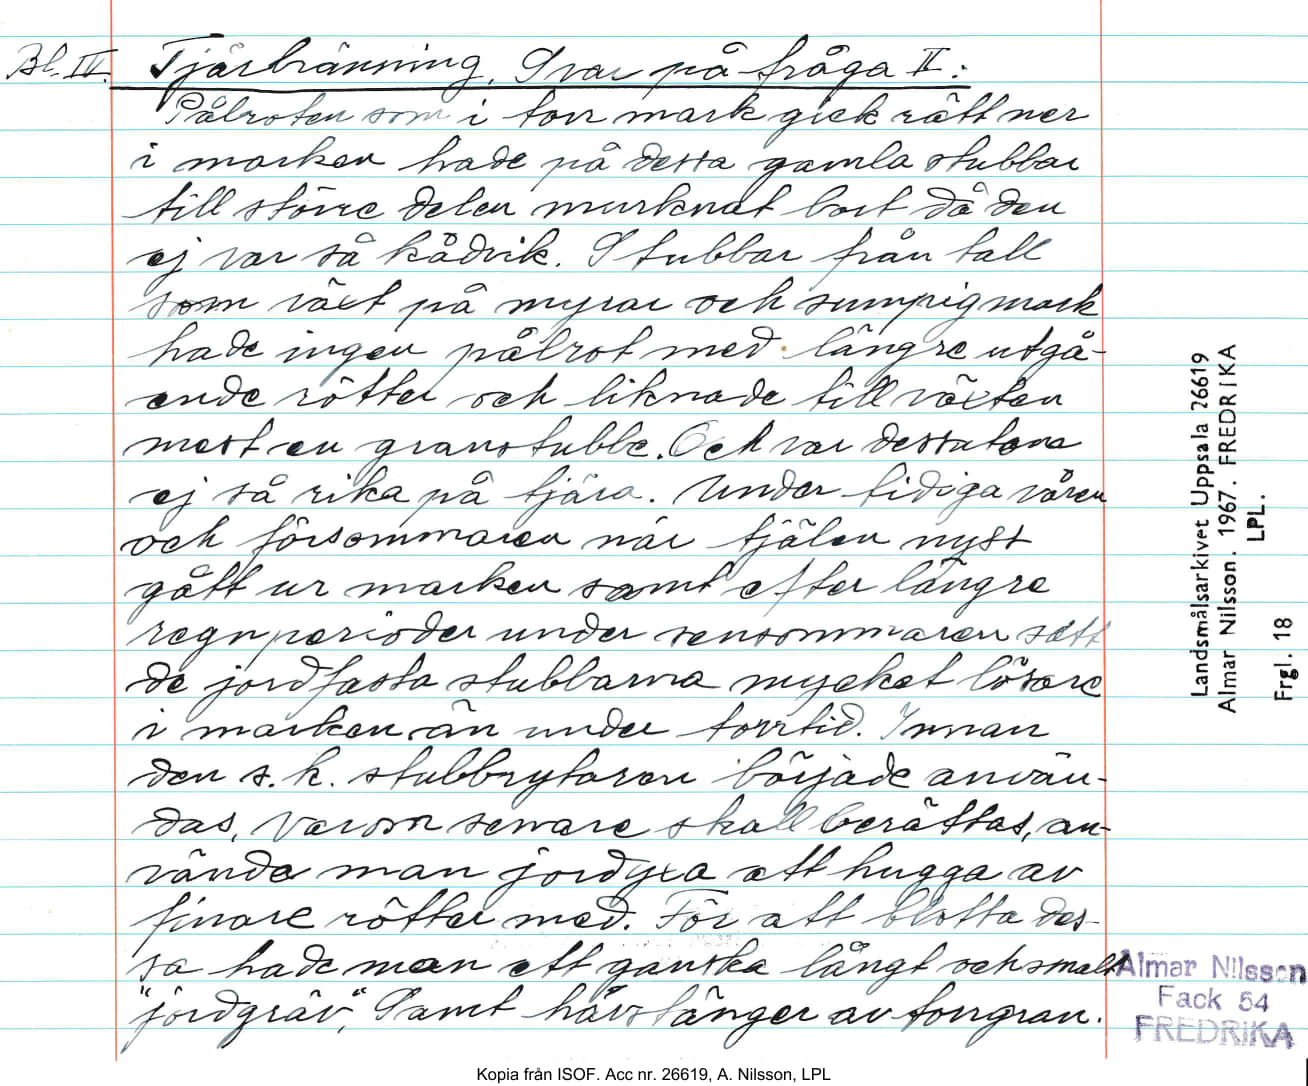 Bl. IV. Tjärbränning. Svar på fråga II:
Pålroten som i torr mark gick rätt ner
i marken hade på dessa gamla stubbar
till större delen murknat bort då den
ej var så kådrik. Stubbar från tall
som växt på myrar och sumpig mark
hade ingen pålrot med längre utgå-
ende rötter och liknade till växten
mest en granstubbe. Och var dessutom
ej så rika på tjära. Under tidiga våren
och försommaren när tjälen nyst
gått ur marken samt efter längre
regnperioder under sensommaren satt
de jordfasta stubbarna mycket lösare
i marken än under torrtid. Innan
den s.k. stubbrytaren började använ-
das, varom senare skall berättas, an-
vände man jordyxa att hugga av
finare rötter med. För att blotta des-
sa hade man ett ganska långt och smalt
"jordgräv", Samt hävstänger av torrgran.
Landsmålsarkivet Uppsala 26619
Almar Nilsson. 1967. FREDRIKA
LPL.
Frgl. 18
Almar Nilsson
Fack 54
FREDRIKA
Kopia från ISOF. Acc nr. 26619, A. Nilsson, LPL